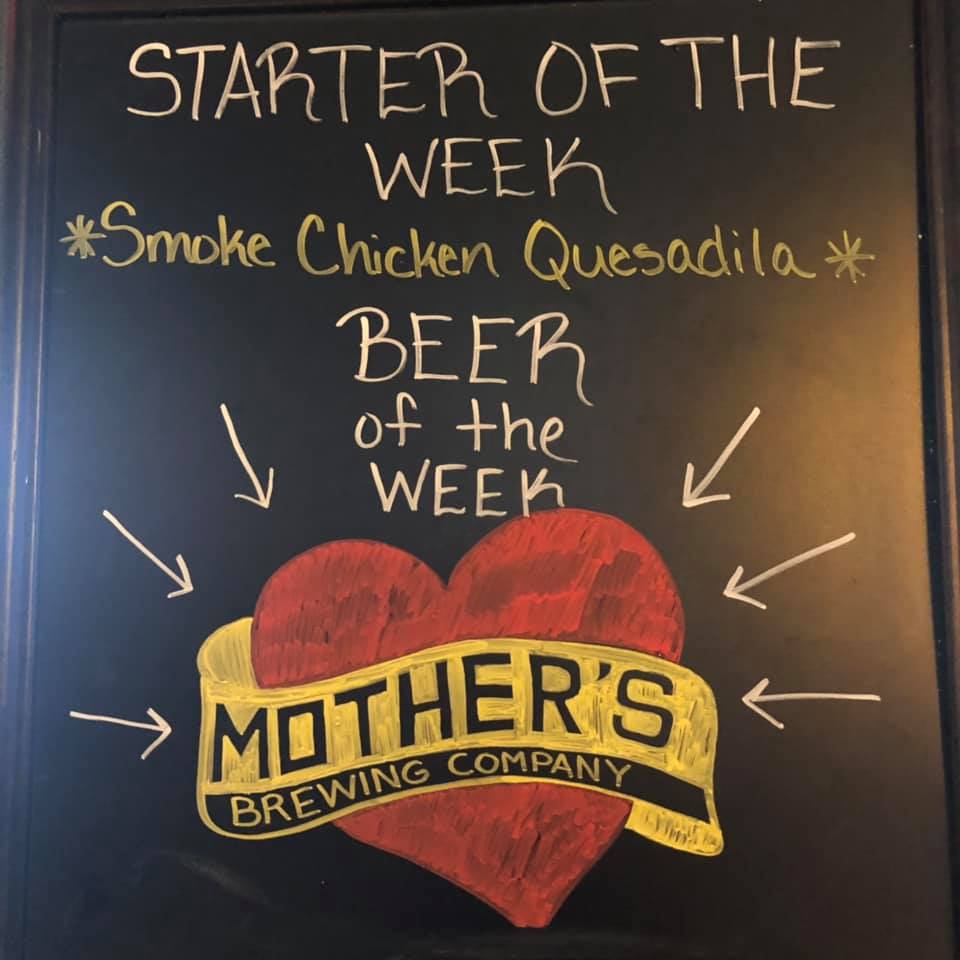 STARTER OF THE
WEEK
*Smoke Chicken Quesadila*
BEER
of the
WEEK
MOTHER'S
BREWING COMPANY